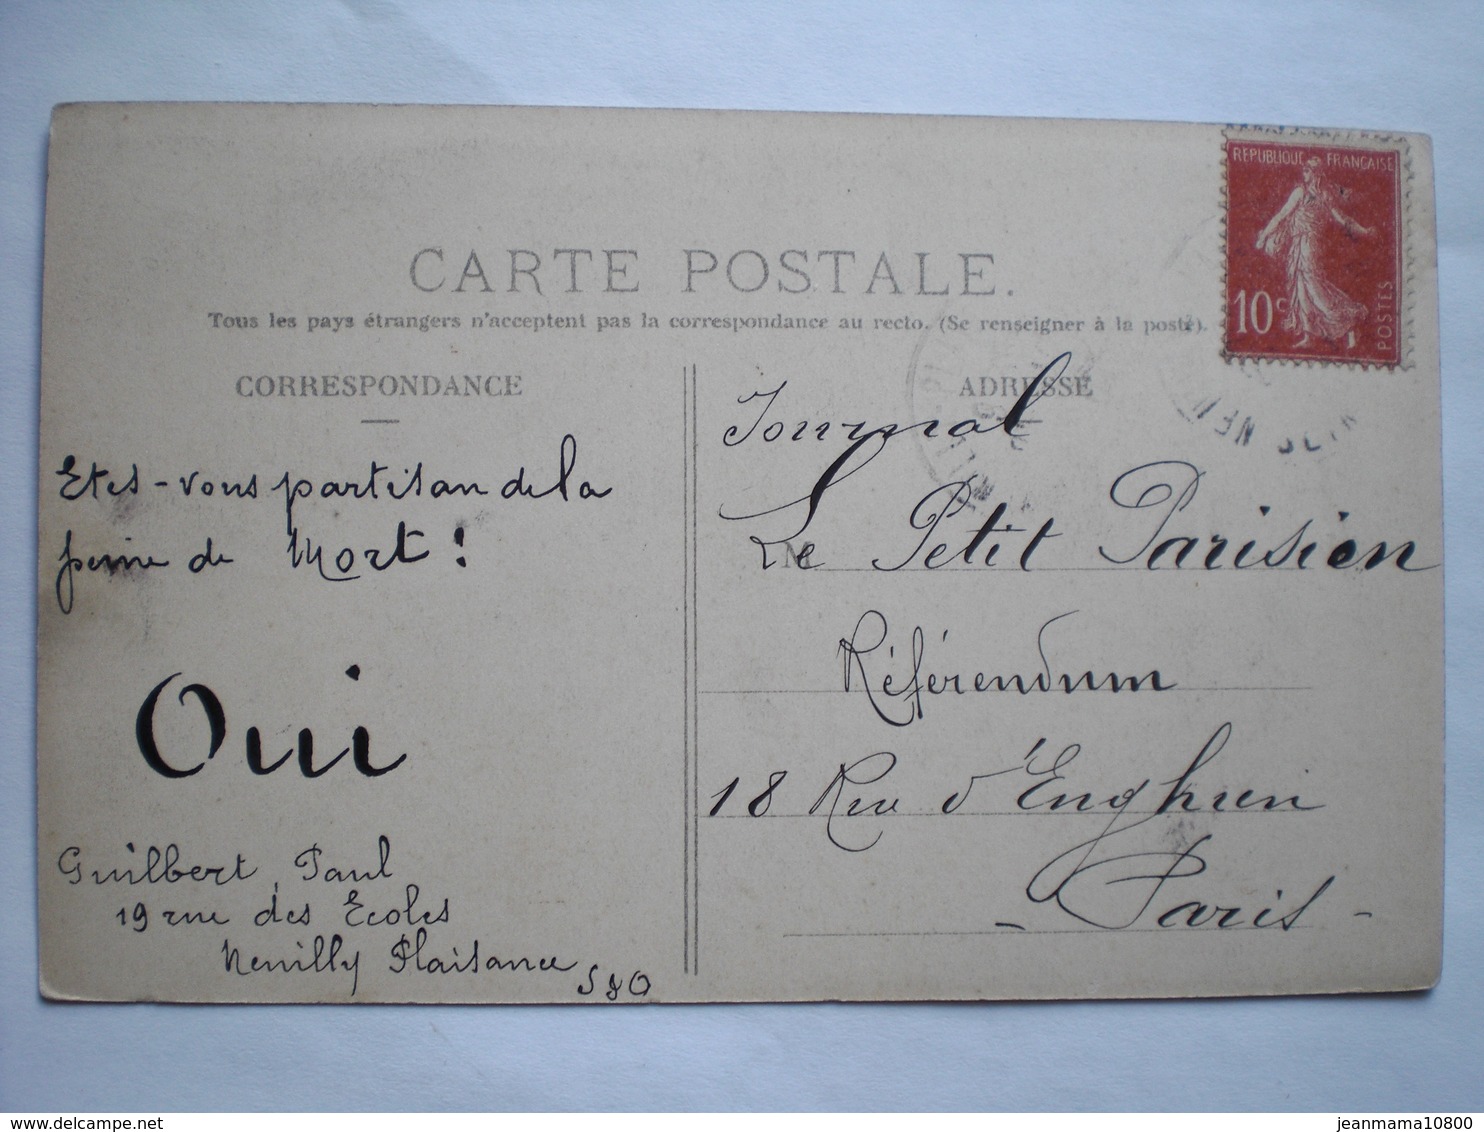 REPUBLIQUE FRANÇAISE
10c
POSTES
CARTE POSTALE.
Tous les pays étrangers n'acceptent pas la correspondance au recto. (Se renseigner à la poste).
CORRESPONDANCE
Etes-vous partisan de la
peine de Mort !
Oui
Guilbert Paul
19 rue des Ecoles
Neuilly Plaisance
S & O
ADRESSE
Journal
M
Le Petit Parisien
Référendum
18 Rue d'Enghien
- Paris -
delcampe.net
jeanmama10800